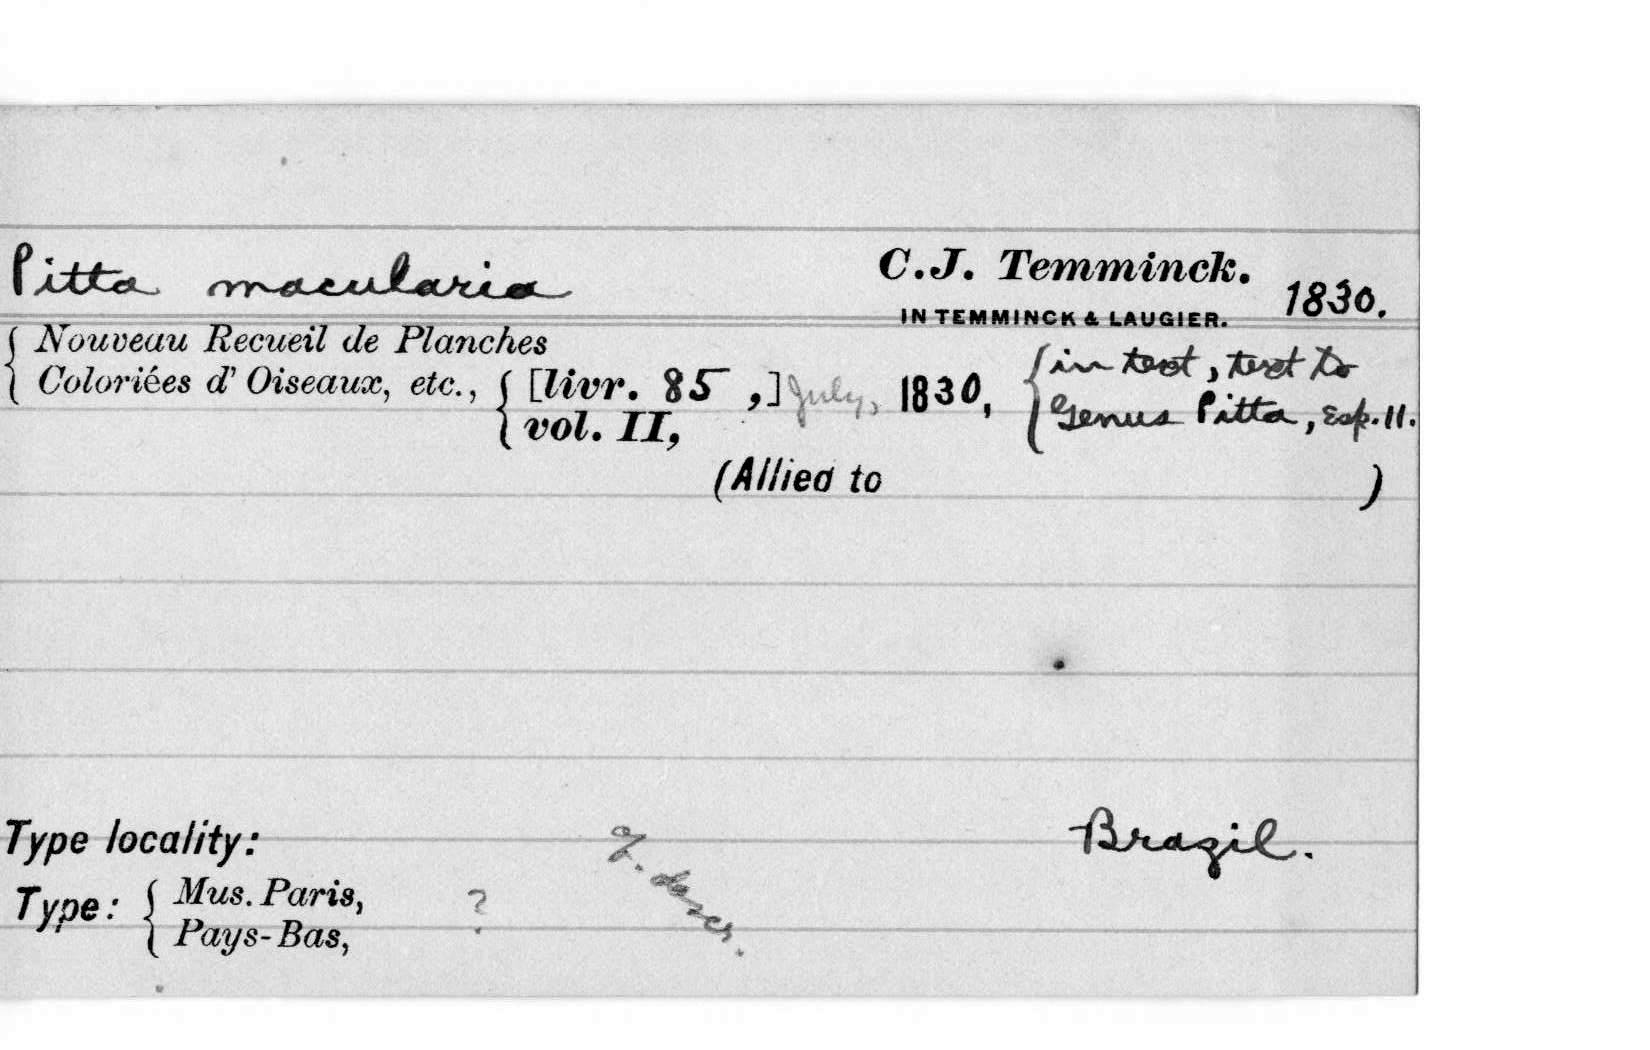 Pitta macularia
C.J. Temminck. 1830.
IN TEMMINCK & LAUGIER.
{ Nouveau Recueil de Planches
Coloriées d' Oiseaux, etc., { [livr. 85 ,] July, 1830, { in text, text to
vol. II, Genus Pitta, Esp. 11.
(Allied to )
Type locality: Brazil.
Type: { Mus. Paris, ?
Pays-Bas,
descr.